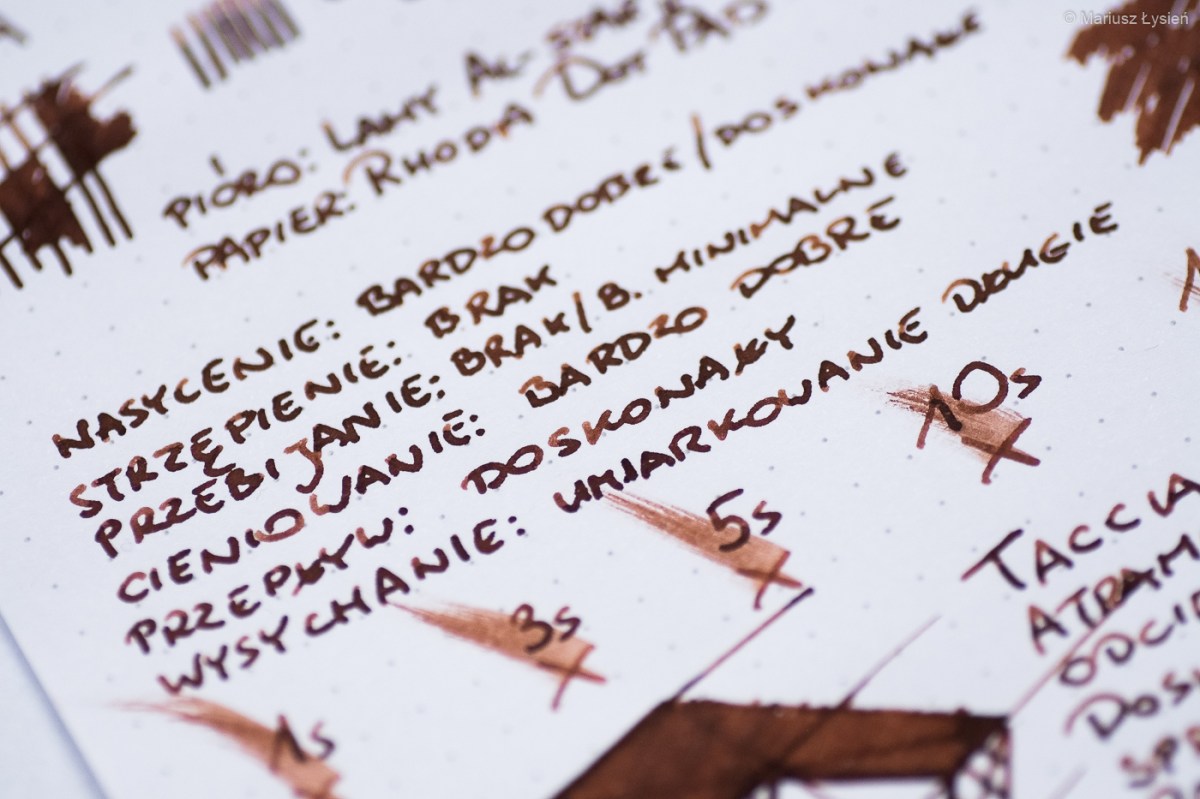 © Mariusz Łysień
PIÓRO: LAMY AL-STAR
PAPIER: RHODIA DOT PAD
NASYCENIE: BARDZO DOBRE/DOSKONAŁE
STRZĘPIENIE: BRAK
PRZEBIJANIE: BRAK/B. MINIMALNE
CIENIOWANIE: BARDZO DOBRE
PRZEPŁYW: DOSKONAŁY
WYSYCHANIE: UMIARKOWANIE DŁUGIE
1s
3s
5s
10s
TACCIA
ATRAM
ODCI
DOS
SPR